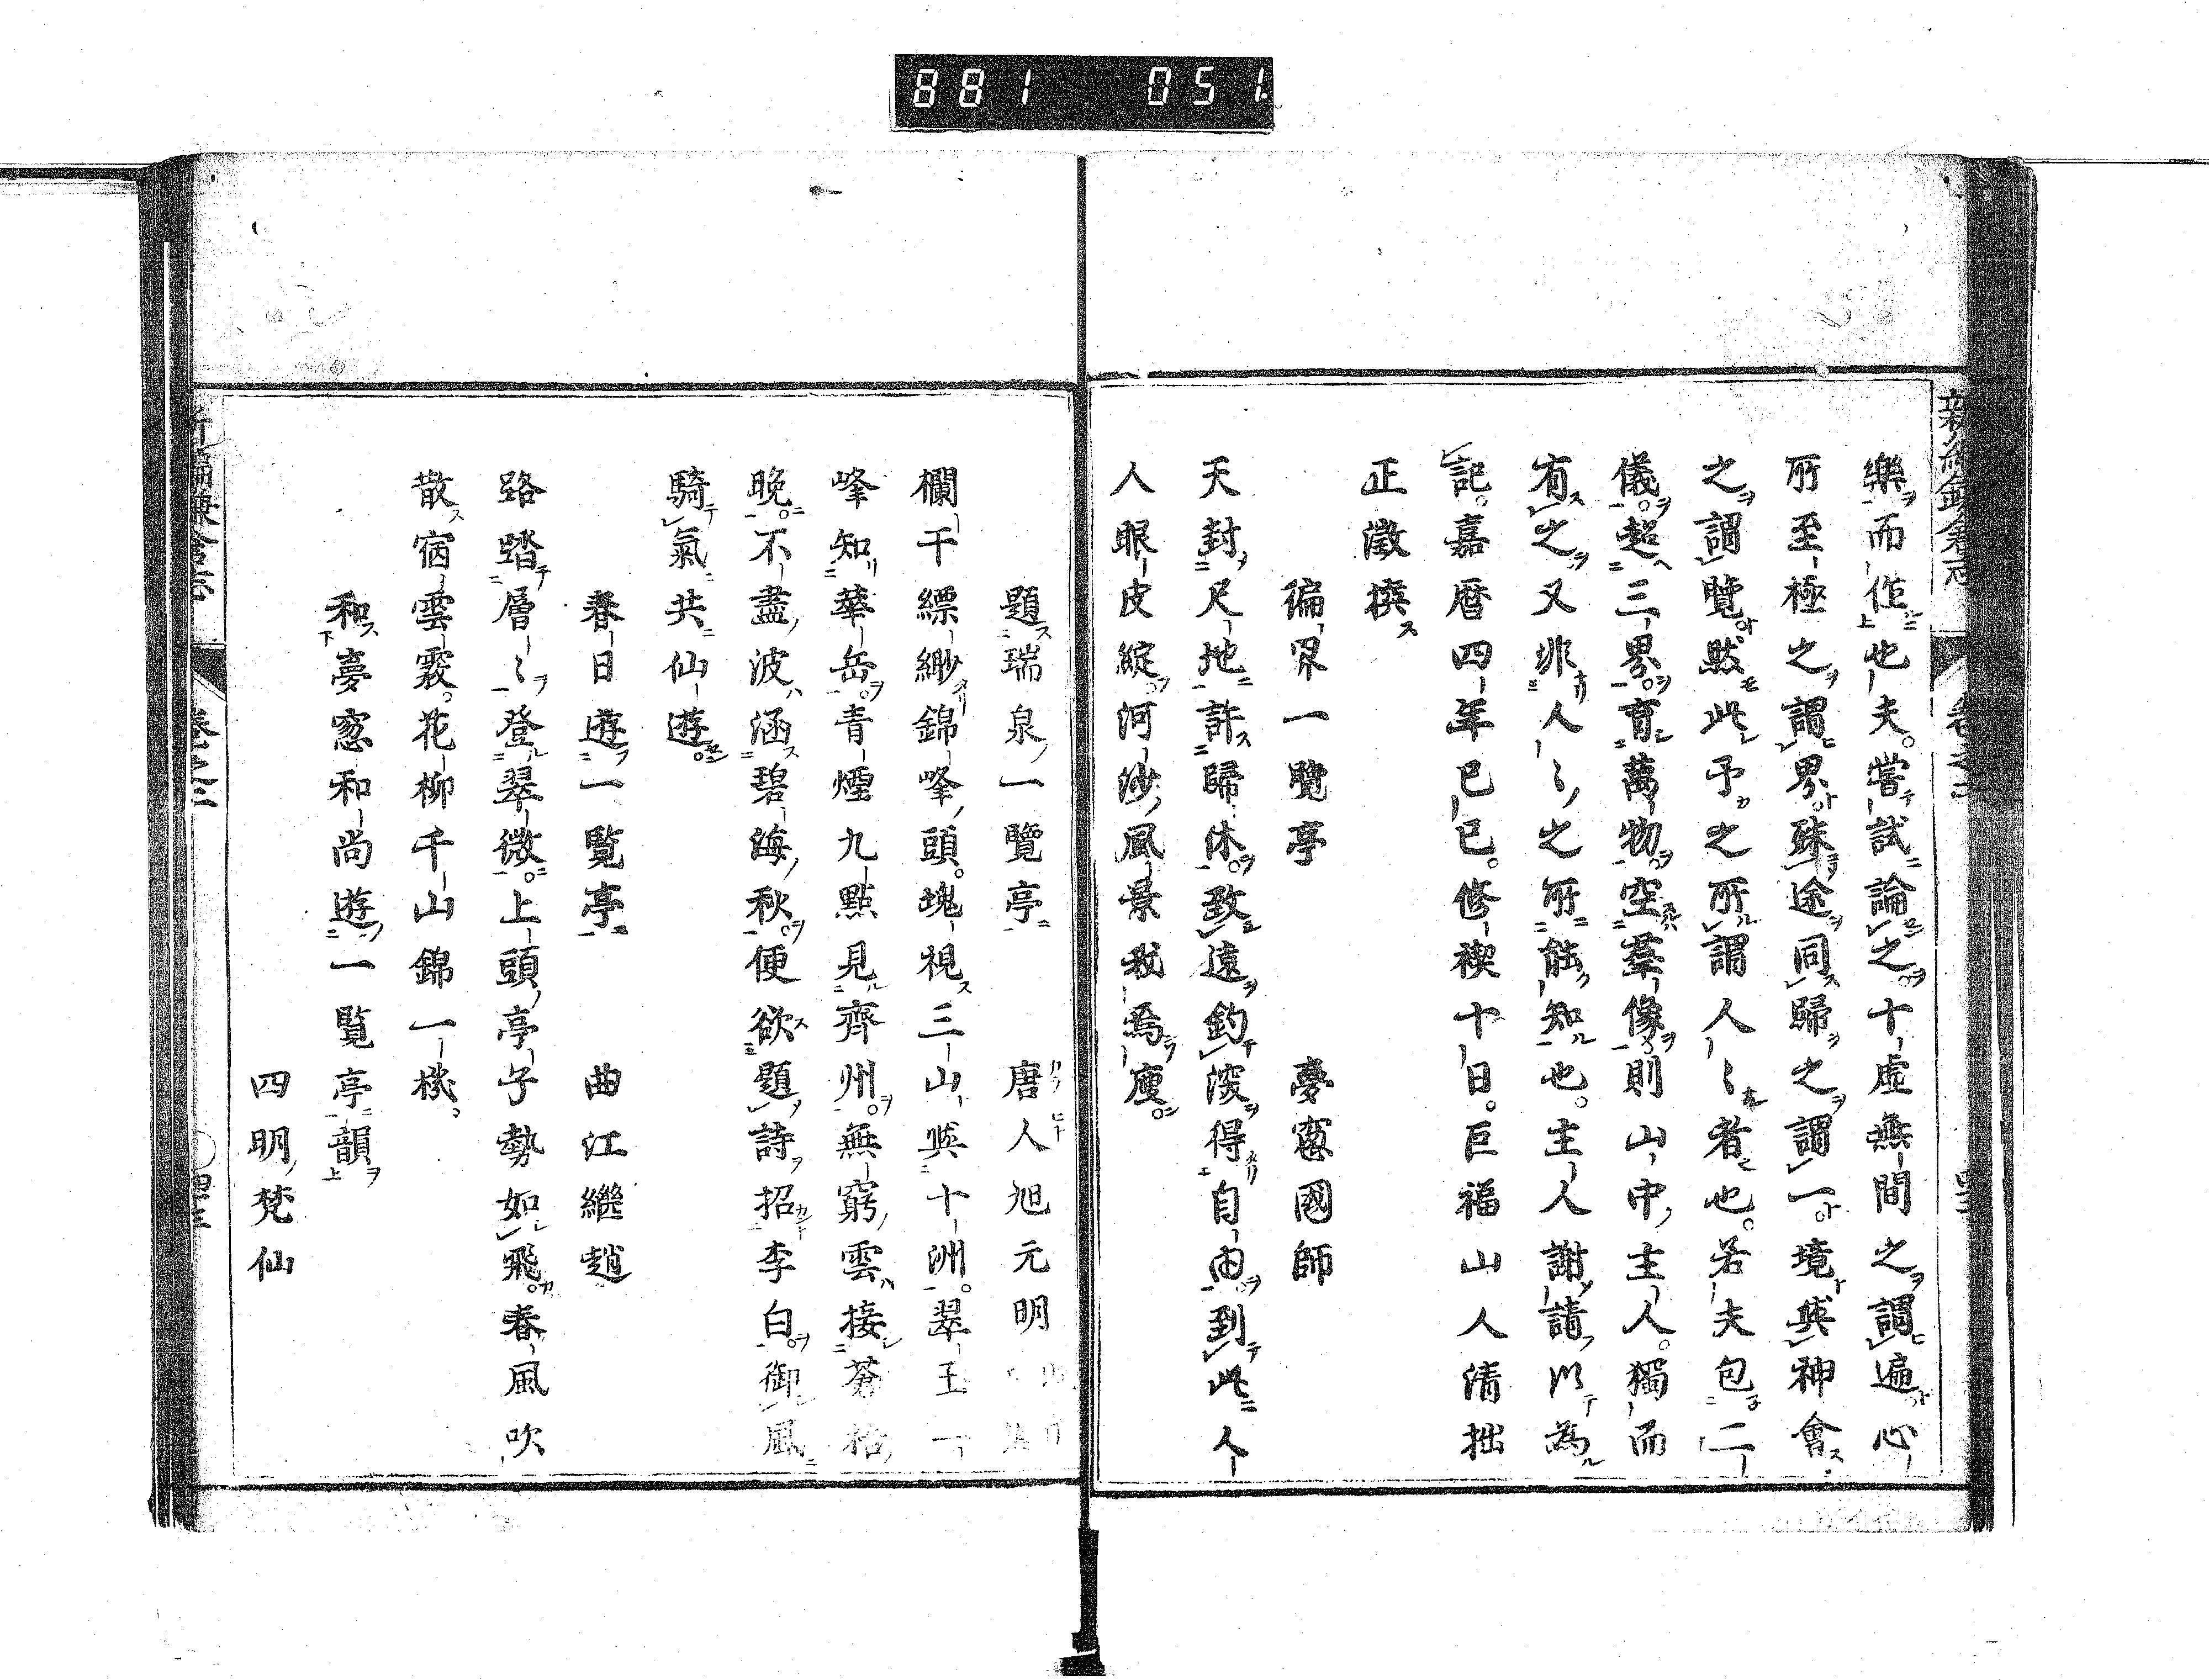 881 051
樂而作也夫嘗試論之十虛無間之謂遍心
所至極之謂界殊途同歸之謂一境與神會
之謂覽然此予之所謂人〻者也若夫包二
儀超三界育萬物空羣像則山中主人獨而
有之又非人〻之所能知也主人謝請以為
記嘉曆四年己巳修禊十日巨福山人清拙
正澂撰
徧界一覽亭 夢窓國師
天封尺地許歸休致遠鈎深得自由到此人
人眼皮綻河沙風景我焉廋
題瑞泉一覽亭 唐人旭元明
欄干縹緲錦峰頭塊視三山與十洲翠玉一
峰知華岳青煙九點見齊州無窮雲接蒼梧
晚不盡波涵碧海秋便欲題詩招李白御風
騎氣共仙遊
春日遊一覧亭 曲江繼趙
路踏層〻登翠微上頭亭子勢如飛春風吹
散宿雲霧花柳千山錦一機
和夢窓和尚遊一覧亭韻
四明梵仙
新編鎌倉志 卷之二